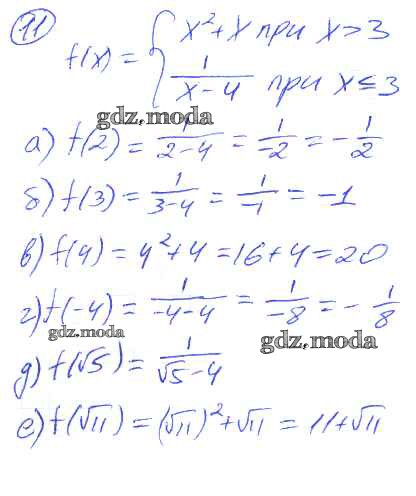 11
f(x) = { x² + x при x > 3
1/(x-4) при x ≤ 3
gdz.moda
а) f(2) = 1/(2-4) = 1/-2 = -1/2
б) f(3) = 1/(3-4) = 1/-1 = -1
в) f(4) = 4² + 4 = 16 + 4 = 20
г) f(-4) = 1/(-4-4) = 1/-8 = -1/8
gdz.moda
gdz.moda
д) f(√5) = 1/(√5-4)
е) f(√11) = (√11)² + √11 = 11 + √11